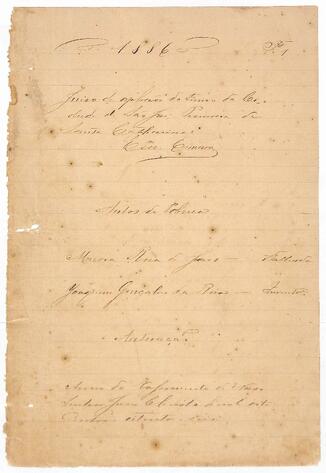 1886
Juizo de orphãos do termo da Ci-
dade de São José Provincia de
Santa Catharina
Autos de
Maria Rosa de Jesus — Fallecida
Joaquim Gonçalves da Rosa — Invent.
Autuação
Anno do Nascimento de Nosso
Senhor Jesus Christo de mil oito
centos oitenta e seis